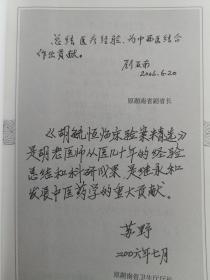 总结医疗经验、为中西医结合
作出贡献。
2006.6.20
原湖南省副省长
《胡毓恒临床验案精选》
是胡老医师从医几十年的经验
总结和科研成果，是继承和
发展中医药学的重大贡献。
苏野
二00六年七月
原湖南省卫生厅厅长